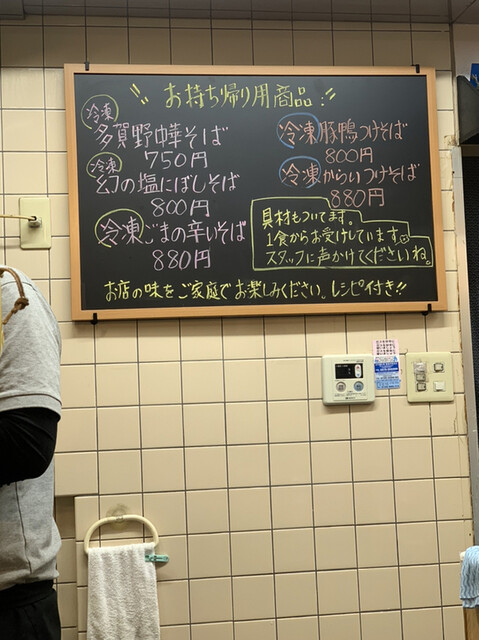 お持ち帰り用商品!!
冷凍
多賀野中華そば
750円
冷凍
幻の塩にぼしそば
800円
冷凍ごまの辛いそば
880円
冷凍豚鴨つけそば
800円
冷凍からいつけそば
880円
具材もついてます。
1食からお受けしています。
スタッフに声かけてくださいね。
お店の味をご家庭でお楽しみください。レシピ付き!!